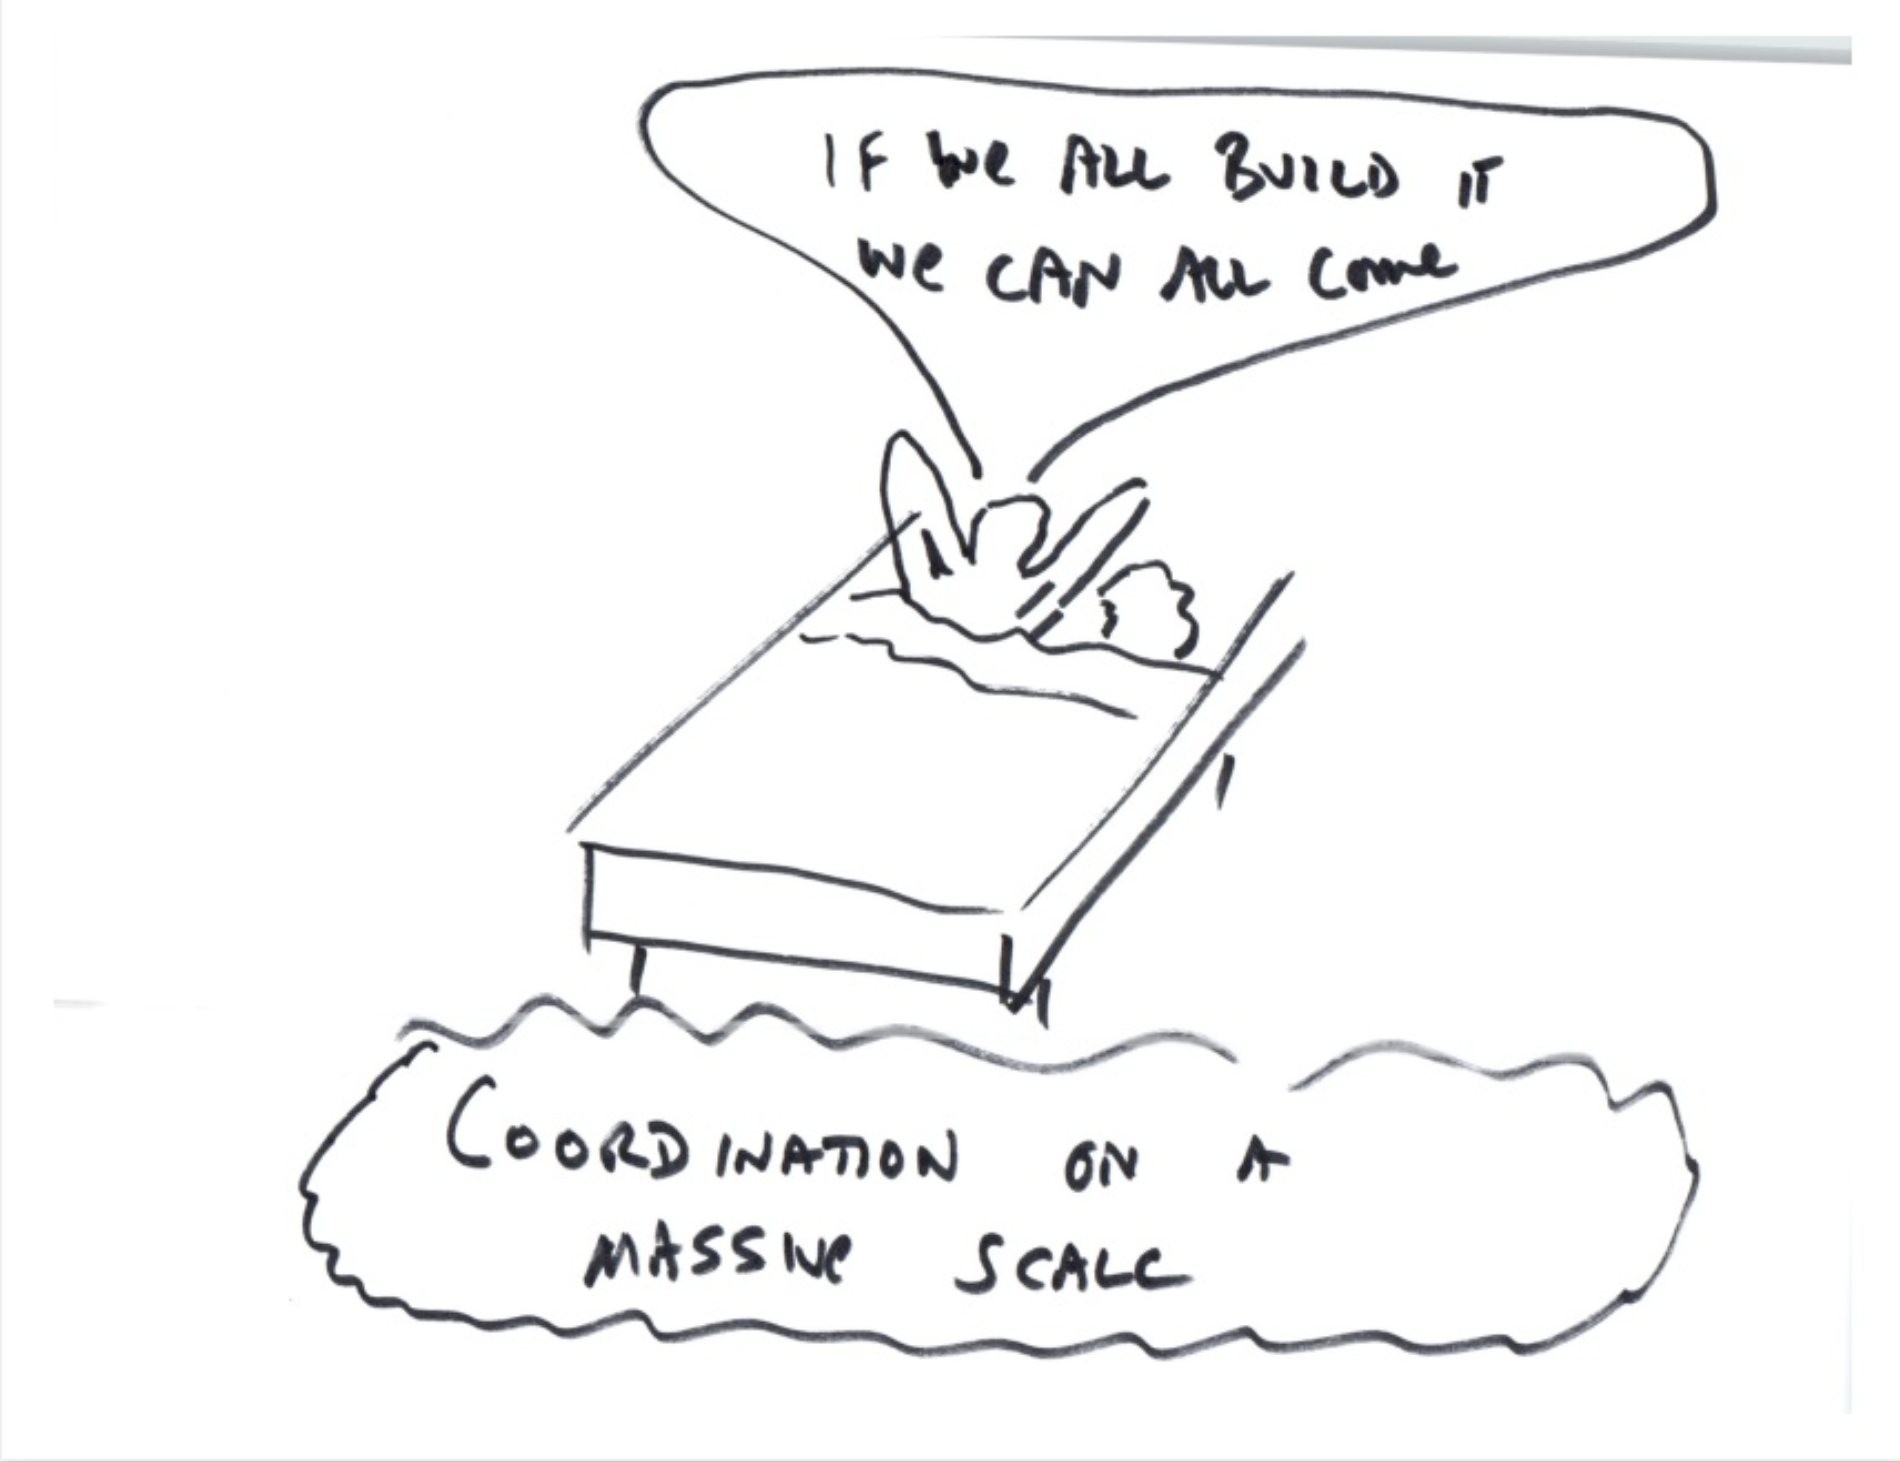 IF WE ALL BUILD IT
WE CAN ALL COME
COORDINATION ON A
MASSIVE SCALE